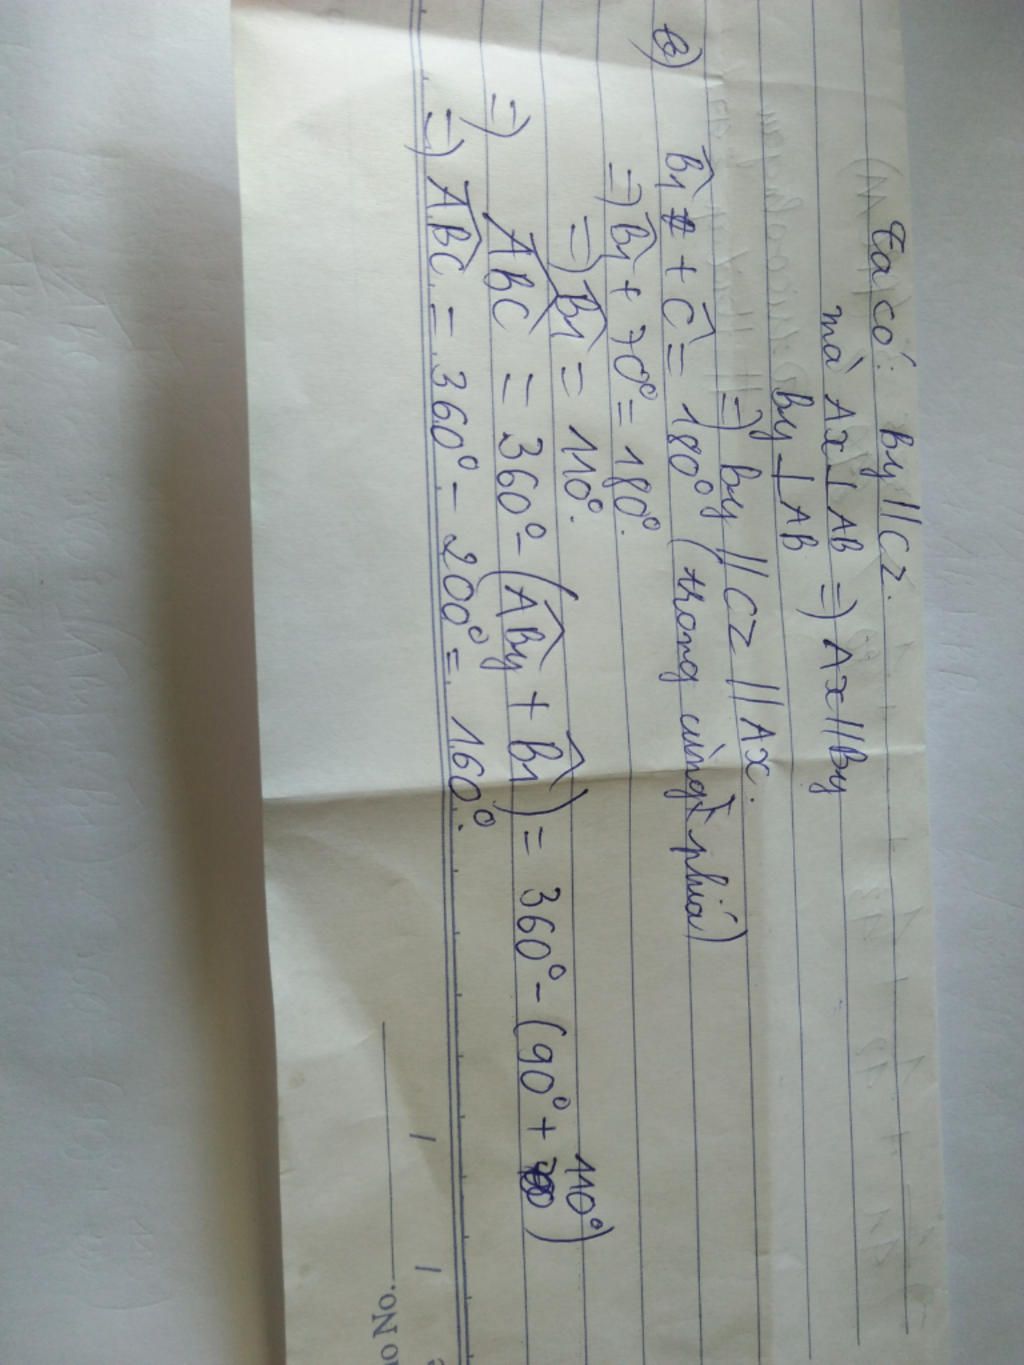 Ta có: By // Cz.
mà Ax ⊥ AB => Ax // By
By ⊥ AB
=> By // Cz // Ax.
b) B̂1 + Ĉ = 180° (trong cùng phía)
=> B̂1 + 70° = 180°.
=> B̂1 = 110°.
=> ABC = 360° - (ABy + B̂1) = 360° - (90° + 110°)
=> ABC = 360° - 200° = 160°.
No.